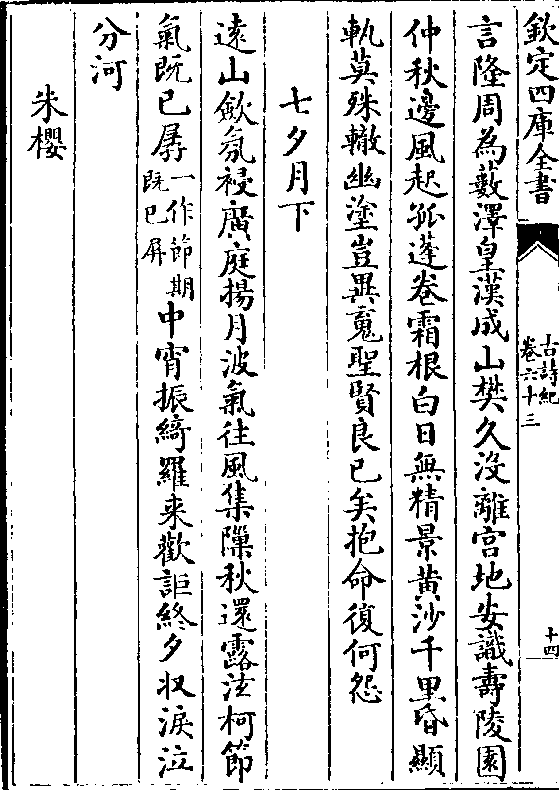 欽定四庫全書
古詩紀
卷六十三
十四
言隆周為藪澤皇漢成山樊久没離宫地安識壽陵園
仲秋邊風起孤蓬卷霜根白日無精景黄沙千里昏顯
軌莫殊轍幽塗豈異魂聖賢良已矣抱命復何怨
七夕月下
逺山斂氛祲廣庭揚月波氣往風集隟秋還露泫柯節
氣既已孱一作節期
既已孱中宵振綺羅来歡詎終夕収淚泣
分河
朱櫻